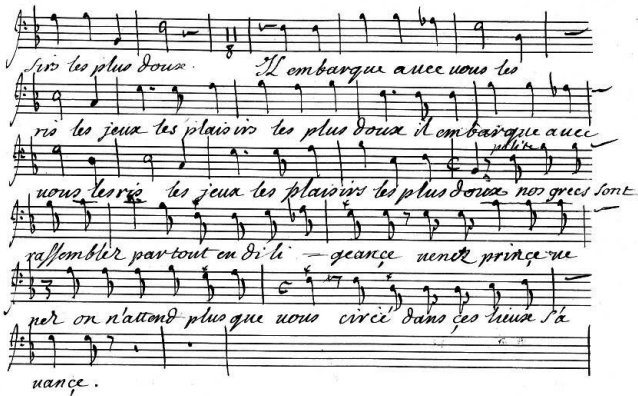 sirs les plus doux. Il embarque avec vous les
ris les jeux les plaisirs les plus doux il embarque avec
vous les ris les jeux les plaisirs les plus doux nos grecs sont
rassemblez partout en dili - geançe venez prinçe ve
nez on n'attend plus que vous circé dans çes lieux s'a
vançe.